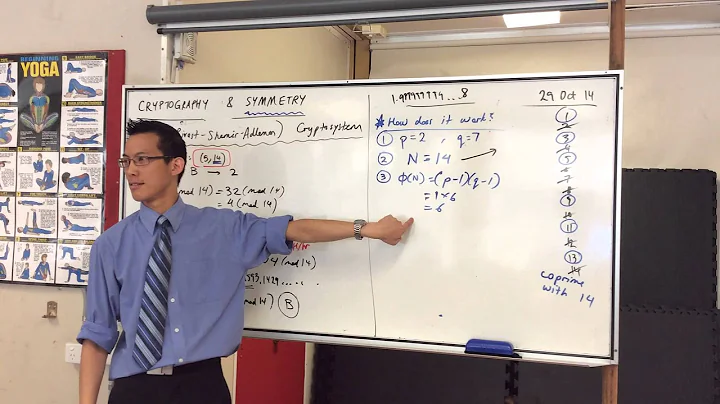 BEGINNING
YOGA
CRYPTOGRAPHY & SYMMETRY
Rivest-Shamir-Adleman) Cryptosystem
(5, 14)
B → 2
mod 14) = 32 (mod 14)
= 4 (mod 14)
4 (mod 14)
mod 14) B
* How does it work?
① p=2 , q=7
② N = 14
③ φ(N) = (p-1)(q-1)
= 1×6
= 6
29 Oct 14
1
2
3
4
5
6
7
8
9
10
11
12
13
14
coprime
with 14